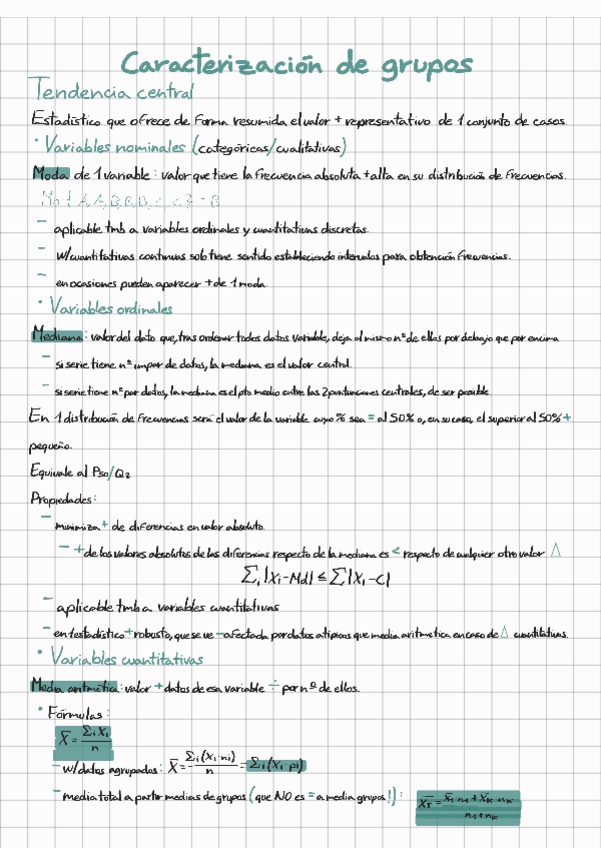 Caracterización de grupos
Tendencia central
Estadístico que ofrece de forma resumida el valor + representativo de 1 conjunto de casos.
· Variables nominales (categóricas/cualitativas)
Moda de 1 variable: valor que tiene la frecuencia absoluta + alta en su distribución de frecuencias.
- aplicable tmb a variables ordinales y cuantitativas discretas.
- w/cuantitativas continuas solo tiene sentido estableciendo intervalos para obtención frecuencias.
- en ocasiones pueden aparecer + de 1 moda.
· Variables ordinales
Mediana: valor del dato que, tras ordenar todos datos variable, deja el mismo nº de ellos por debajo que por encima
- si serie tiene nº impar de datos, la mediana es el valor central.
- si serie tiene nº par datos, la mediana es el pto medio entre las 2 puntuaciones centrales, de ser posible.
En 1 distribución de frecuencias será el valor de la variable cuyo % sea = al 50% o, en su caso, el superior al 50% +
pequeño.
Equivale al P50/Q2
Propiedades:
- minimiza + de diferencias en valor absoluto.
- + de los valores absolutos de las diferencias respecto de la mediana es < respecto de cualquier otro valor Δ
∑i |Xi-Md| ≤ ∑|Xi-C|
- aplicable tmb a variables cuantitativas
- en testadístico + robusto, que se ve - afectada por datos atípicos que media aritmética en caso de Δ cuantitativas.
· Variables cuantitativas
Media aritmética: valor + datos de esa variable ÷ por nº de ellos.
· Fórmulas:
X̄ = ∑i Xi / n
- w/datos agrupados: X̄ = ∑i(Xi·ni) / n = ∑i(Xi·pi)
- media total a partir medias de grupos (que NO es = a media grupos!): X̄T = X̄1·n1 + X̄k·nk / n1+nk